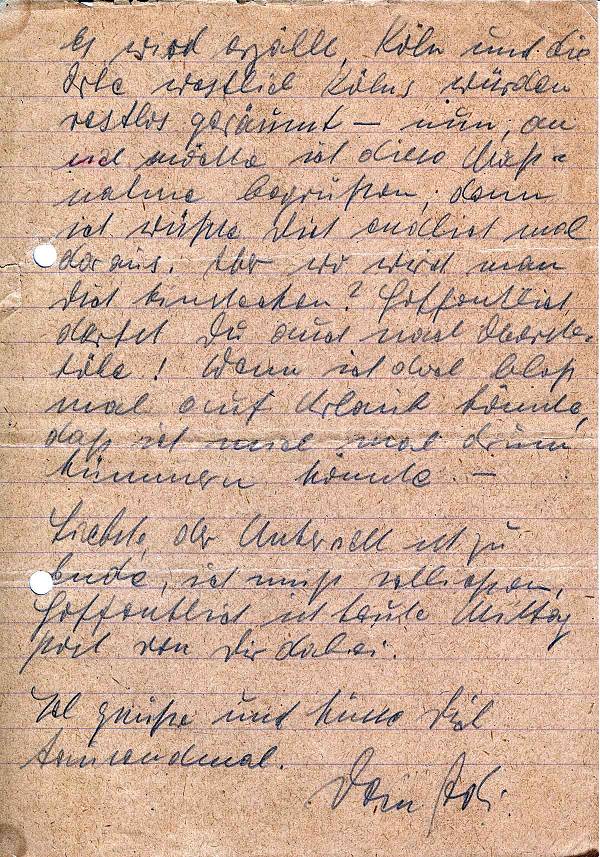 Es wird erzählt, Köln und die
Orte westlich Kölns würden
restlos geräumt – nun, an
und möchte ich diese Maß=
nahme begrüßen, denn
ich wüßte Dich endlich mal
daraus. Aber wo wird man
Dich hinstecken? Hoffentlich
darfst Du auch nach
! Wenn ich doch bloß
mal auf Urlaub könnte,
daß ich mich mal drum
kümmern könnte. –
Liebste, der Unterricht ist zu
Ende, ich muß schließen.
Hoffentlich ist heute Mittag
Post von Dir dabei.
Ich grüße und küsse Dich
tausendmal.
Dein